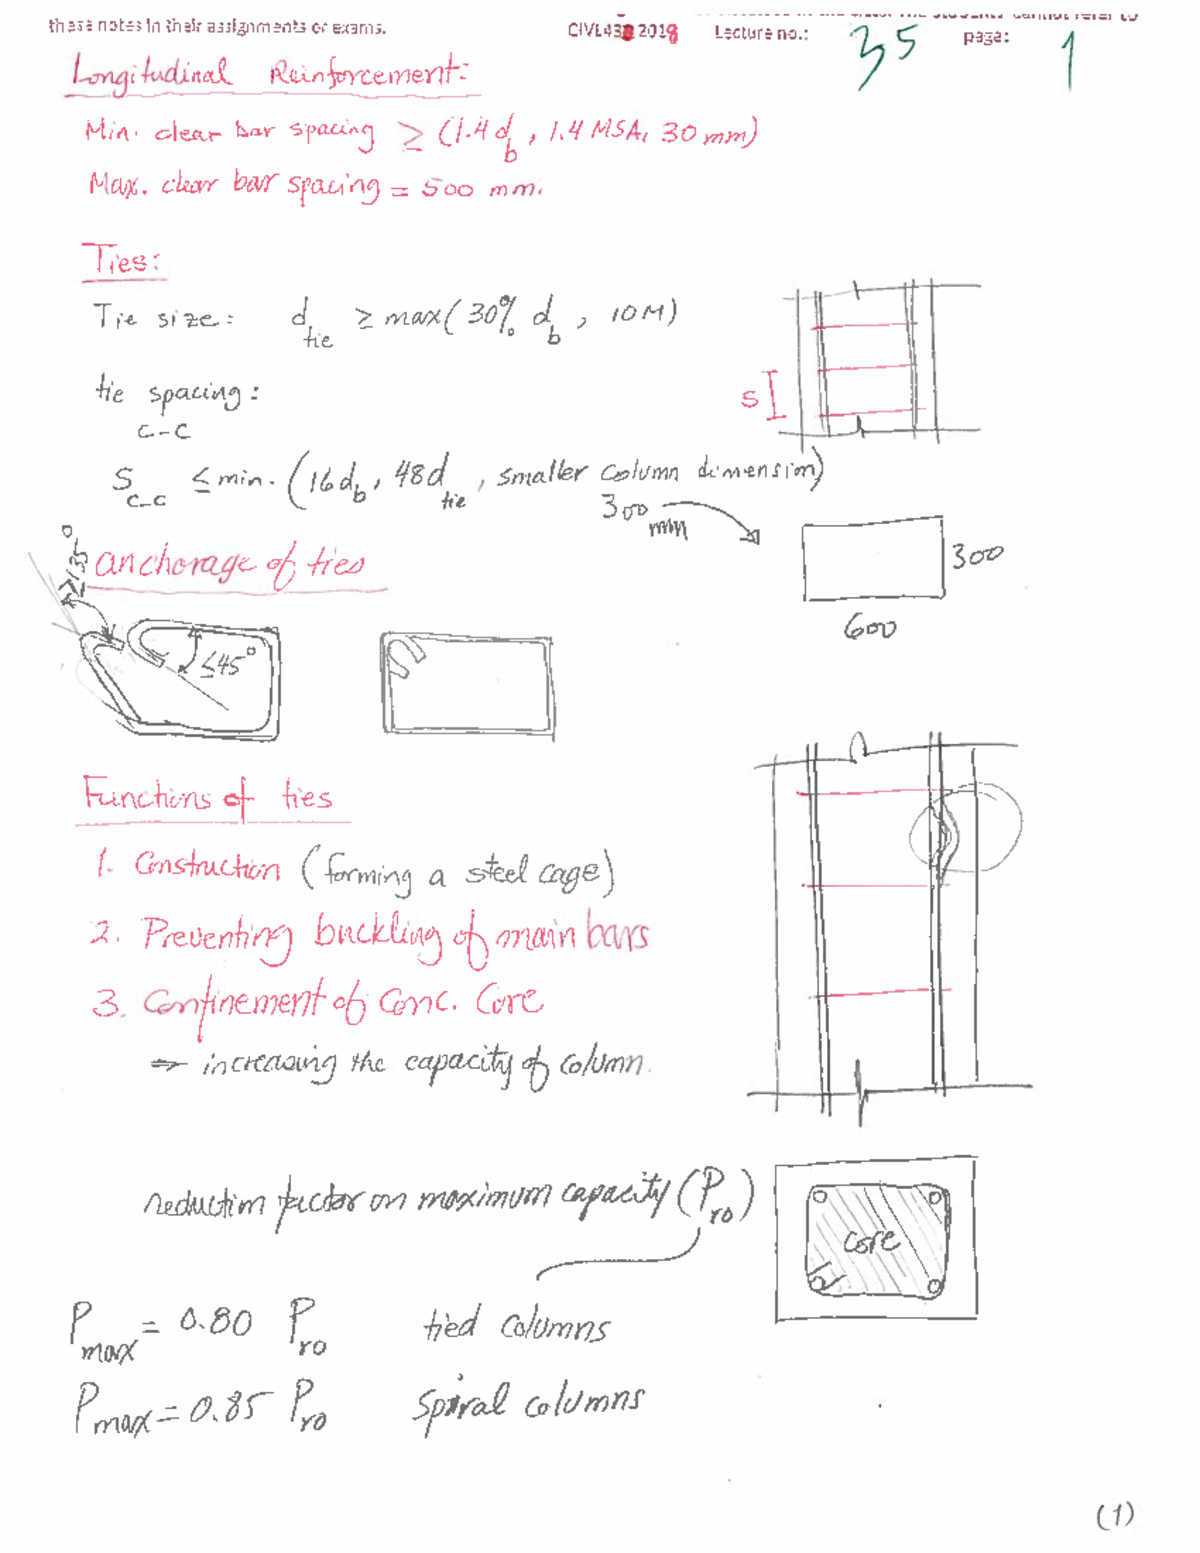 these notes in their assignments or exams.
CIVL432 2018 Lecture no.: 35 page: 1
Longitudinal Reinforcement:
Min. clear bar spacing ≥ (1.4 d_b, 1.4 MSA, 30 mm)
Max. clear bar spacing = 500 mm.
Ties:
Tie size: d_tie ≥ max( 30% d_b, 10M)
tie spacing:
C-C
S
S_c-c ≤ min. (16d_b, 48d_tie, smaller column dimension)
300 mm
300
600
anchorage of ties
≥135°
≤45°
Functions of ties
1. Construction (forming a steel cage)
2. Preventing buckling of main bars
3. Confinement of Conc. Core
⇒ increasing the capacity of column.
reduction factor on maximum capacity (P_ro)
core
P_max = 0.80 P_ro tied columns
P_max = 0.85 P_ro spiral columns
(1)